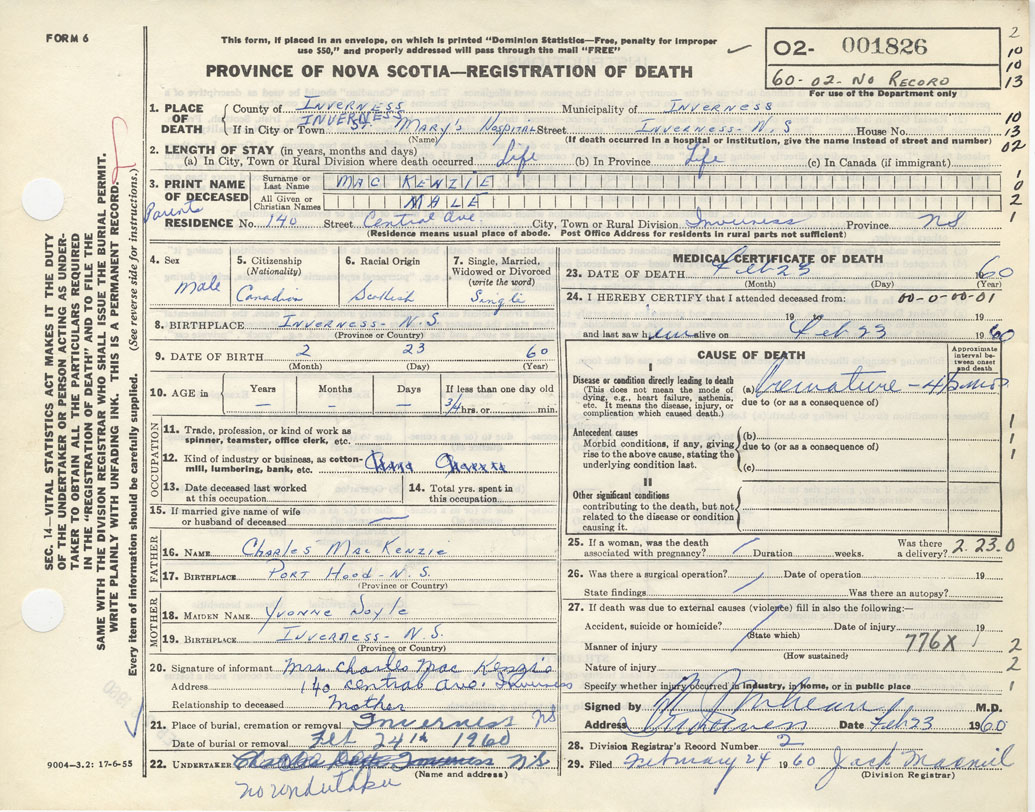 FORM 6
This form, if placed in an envelope, on which is printed "Dominion Statistics—Free, penalty for improper
use $50," and properly addressed will pass through the mail "FREE"
02- 001826
60-02-No Record
For use of the Department only
PROVINCE OF NOVA SCOTIA—REGISTRATION OF DEATH
2
10
10
13
1. PLACE OF DEATH
County of INVERNESS Municipality of INVERNESS
If in City or Town INVERNESS St. Mary's Hospital Street INVERNESS- N.S House No.
(Name) (If death occurred in a hospital or institution, give the name instead of street and number)
10
13
02
2. LENGTH OF STAY (in years, months and days)
(a) In City, Town or Rural Division where death occurred Life (b) In Province Life (c) In Canada (if immigrant)
3. PRINT NAME OF DECEASED
Surname or Last Name MAC KENZIE
All Given or Christian Names MALE
1
0
2
1
Parents
RESIDENCE No. 140 Street Central Ave. City, Town or Rural Division Inverness Province NS
(Residence means usual place of abode. Post Office Address for residents in rural parts not sufficient)
4. Sex
Male
5. Citizenship
(Nationality)
Canadian
6. Racial Origin
Scottish
7. Single, Married,
Widowed or Divorced
(write the word)
Single
8. BIRTHPLACE INVERNESS- N.S.
(Province or Country)
9. DATE OF BIRTH 2 23 60
(Month) (Day) (Year)
10. AGE in
Years Months Days If less than one day old
— — — 3/4 hrs. or min.
OCCUPATION
11. Trade, profession, or kind of work as
spinner, teamster, office clerk, etc.
12. Kind of industry or business, as cotton-
mill, lumbering, bank, etc.
13. Date deceased last worked
at this occupation
14. Total yrs. spent in
this occupation
15. If married give name of wife
or husband of deceased —
FATHER
16. NAME Charles MacKenzie
17. BIRTHPLACE PORT HOOD- N.S.
(Province or Country)
MOTHER
18. MAIDEN NAME Yvonne Doyle
19. BIRTHPLACE INVERNESS- N.S.
(Province or Country)
20. Signature of informant Mrs. Charles Mac Kenzie
Address 140 central ave. Inverness
Relationship to deceased mother
21. Place of burial, cremation or removal Inverness NS
Date of burial or removal Feb 24th 1960
22. UNDERTAKER Inverness N.S
(Name and address)
no undertaker
9004—3.2: 17-6-55
SEC. 14—VITAL STATISTICS ACT MAKES IT THE DUTY
OF THE UNDERTAKER OR PERSON ACTING AS UNDER-
TAKER TO OBTAIN ALL THE PARTICULARS REQUIRED
IN THE "REGISTRATION OF DEATH" AND TO FILE THE
SAME WITH THE DIVISION REGISTRAR WHO SHALL ISSUE THE BURIAL PERMIT.
WRITE PLAINLY WITH UNFADING INK. THIS IS A PERMANENT RECORD.
Every item of information should be carefully supplied. (See reverse side for instructions.)
MEDICAL CERTIFICATE OF DEATH
23. DATE OF DEATH Feb 23 1960
(Month) (Day) (Year)
24. I HEREBY CERTIFY that I attended deceased from: 00-0-00-01
19 19
and last saw him alive on Feb 23 1960
CAUSE OF DEATH
Approximate
interval be-
tween onset
and death
I
Disease or condition directly leading to death
(This does not mean the mode of
dying, e.g., heart failure, asthenia,
etc. It means the disease, injury, or
complication which caused death.)
(a) Premature - 4½ mos
due to (or as a consequence of)
Antecedent causes
Morbid conditions, if any, giving
rise to the above cause, stating the
underlying condition last.
(b)
due to (or as a consequence of)
(c)
1
1
1
II
Other significant conditions
contributing to the death, but not
related to the disease or condition
causing it.
25. If a woman, was the death
associated with pregnancy? Duration weeks. Was there
a delivery? 2.23.0
26. Was there a surgical operation? Date of operation 19
State findings Was there an autopsy?
27. If death was due to external causes (violence) fill in also the following:—
Accident, suicide or homicide? Date of injury 19
(State which)
Manner of injury 776X 1
(How sustained)
Nature of injury
Specify whether injury occurred in industry, in home, or in public place
2
2
1
Signed by M.D.
Address Inverness Date Feb 23 1960
28. Division Registrar's Record Number 2
29. Filed February 24 1960 Jack Macneil
(Division Registrar)